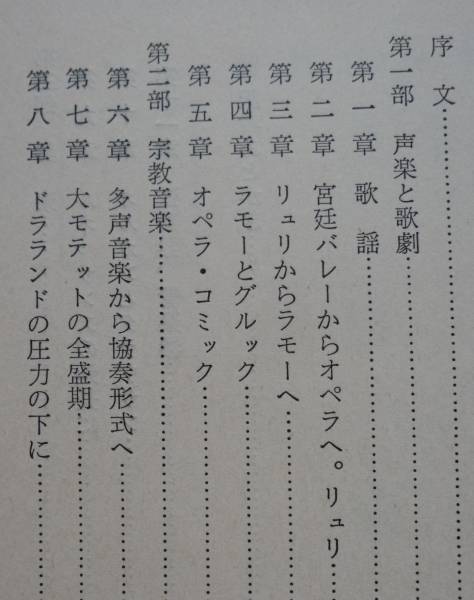 序文……………………
第一部 声楽と歌劇
第一章 歌謡……………………
第二章 宮廷バレーからオペラへ。リュリ……
第三章 リュリからラモーへ……………………
第四章 ラモーとグルック……………………
第五章 オペラ・コミック……………………
第二部 宗教音楽……………………
第六章 多声音楽から協奏形式へ……………………
第七章 大モテットの全盛期……………………
第八章 ドラランドの圧力の下に……………………